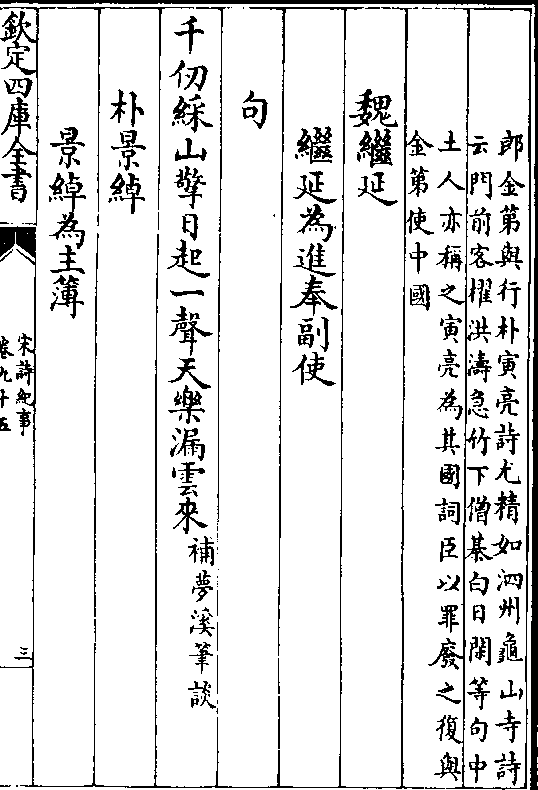 郎金第與行朴寅亮詩尤精如泗州龜山寺詩
云門前客櫂洪濤急竹下僧棊白日閑等句中
土人亦稱之寅亮為其國詞臣以罪廢之復與
金第使中國
魏繼延
繼延為進奉副使
句
千仞綵山擎日起一聲天樂漏雲來補夢溪筆談
朴景綽
景綽為主簿
欽定四庫全書
宋詩紀事
卷九十五
三